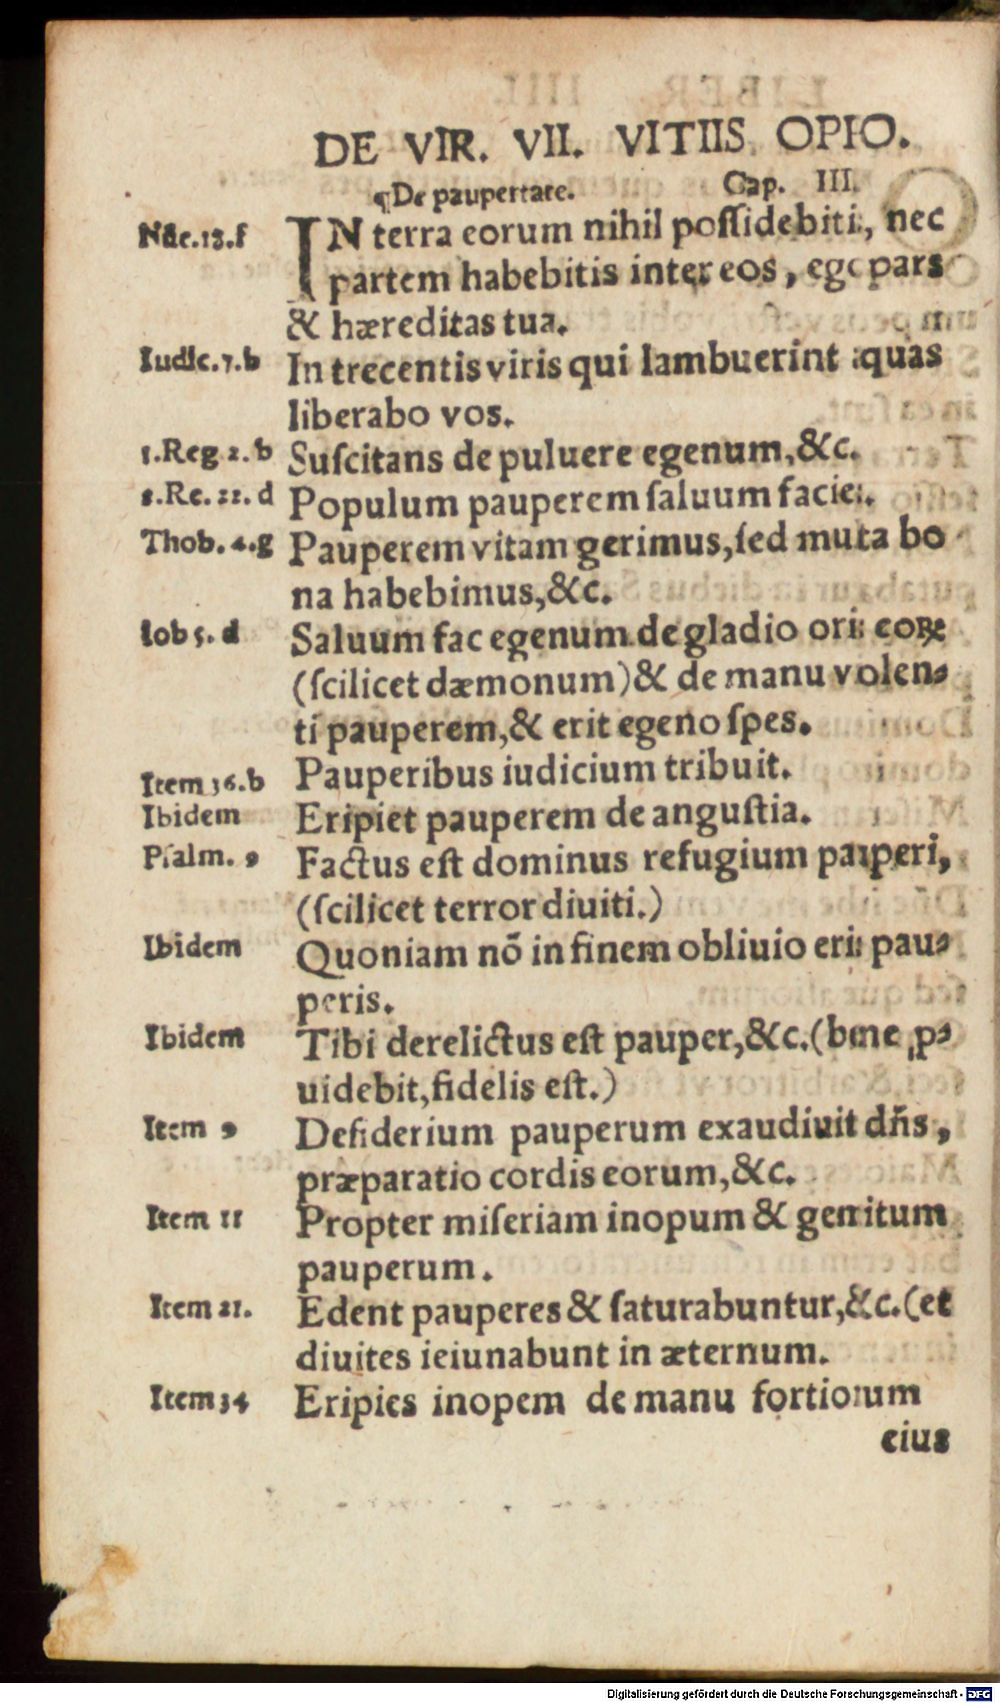 DE VIR. VII. VITIIS OPPO.
¶De paupertate. Cap. III.
Nũe.18.f IN terra eorum nihil poſſidebitis, nec
partem habebitis inter eos, ego pars
& hæreditas tua.
Iudic.7.b In trecentis viris qui lambuerint aquas
liberabo vos.
1.Reg 2.b Suſcitans de puluere egenum,&c.
2.Re.22.d Populum pauperem ſaluum facies.
Thob.4.g Pauperem vitam gerimus,ſed multa bo
na habebimus,&c.
Iob 5. d Saluum fac egenum de gladio oris eoꝝ
(ſcilicet dæmonum)& de manu volen⸗
ti pauperem,& erit egeno ſpes.
Item 36.b Pauperibus iudicium tribuit.
Ibidem Eripiet pauperem de anguſtia.
Pſalm. 9 Factus eſt dominus refugium pauperi,
(ſcilicet terror diuiti.)
Ibidem Quoniam nõ in finem obliuio erit pau⸗
peris.
Ibidem Tibi derelictus eſt pauper,&c.(bene ꝓ⸗
uidebit,fidelis eſt.)
Item 9 Deſiderium pauperum exaudiuit dñs,
præparatio cordis eorum,&c.
Item 11 Propter miſeriam inopum & gemitum
pauperum.
Item 21. Edent pauperes & ſaturabuntur,&c.(et
diuites ieiunabunt in æternum.
Item 34 Eripies inopem de manu fortiorum
eius
Digitalisierung gefördert durch die Deutsche Forschungsgemeinschaft - DFG